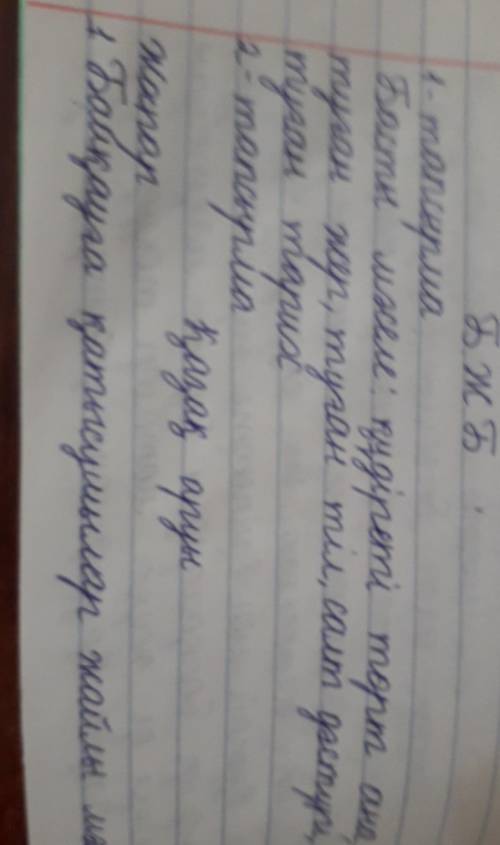 БЖБ
1-тапсырма
Басты мәселе: құдіретті төрт ана,
туған жер, туған тіл, салт дәстүрі,
туған тарих
2-тапсырма
Қазақ аруы
Жаттап
1 Байқауға қатысушылар жайлы мә